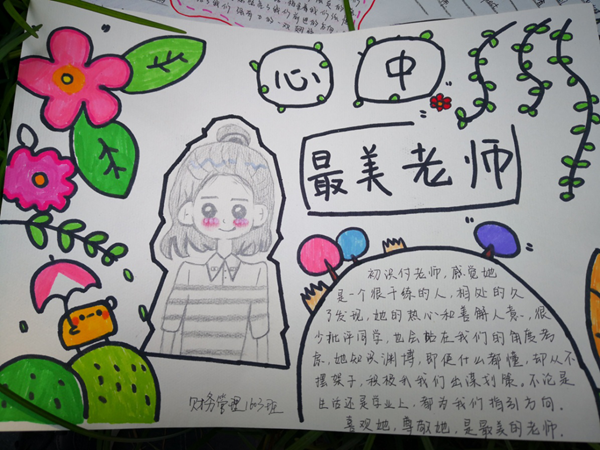 心中
最美老师
初识付老师,感觉她
是一个很干练的人,相处的久
了发现,她的热心和善解人意,很
少批评同学,也会站在我们的角度考
虑,她知识渊博,即使什么都懂,却从不
摆架子,积极我我们出谋划策,不论是
生活还是专业上,都为我们指引方向。
喜欢她,尊敬她,是最美的老师。
财务管理163班